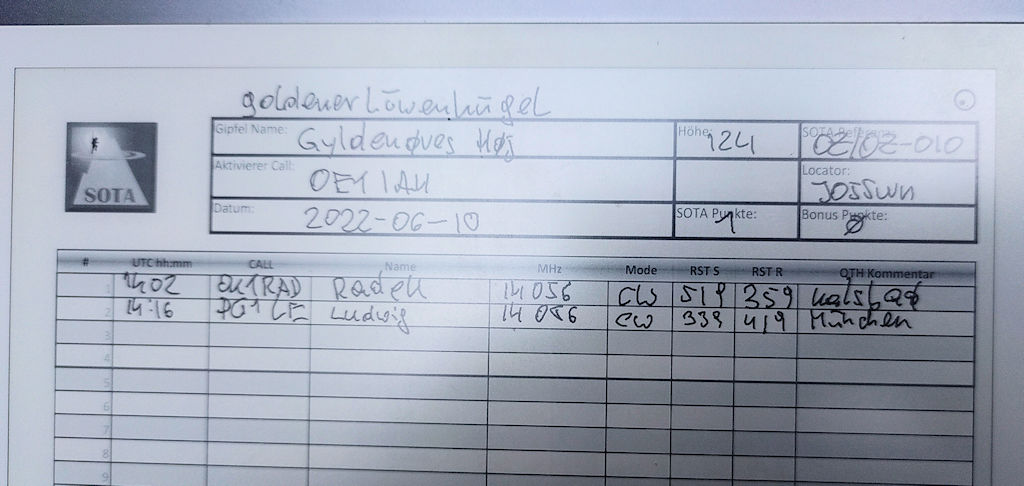 goldener Löwenhügel
Gipfel Name: Gyldenløves Høj Höhe: 124 SOTA Referenz: OZ/OZ-010
Aktivierer Call: OE1IAH Locator: JO55WN
Datum: 2022-06-10 SOTA Punkte: 1 Bonus Punkte: 0
SOTA
# UTC hh:mm CALL Name MHz Mode RST S RST R QTH Kommentar
1 1402 OK1RAD Radek 14056 CW 519 359
2 14:16 Ludwig 14 056 CW 339 419 München
3
4
5
6
7
8
9